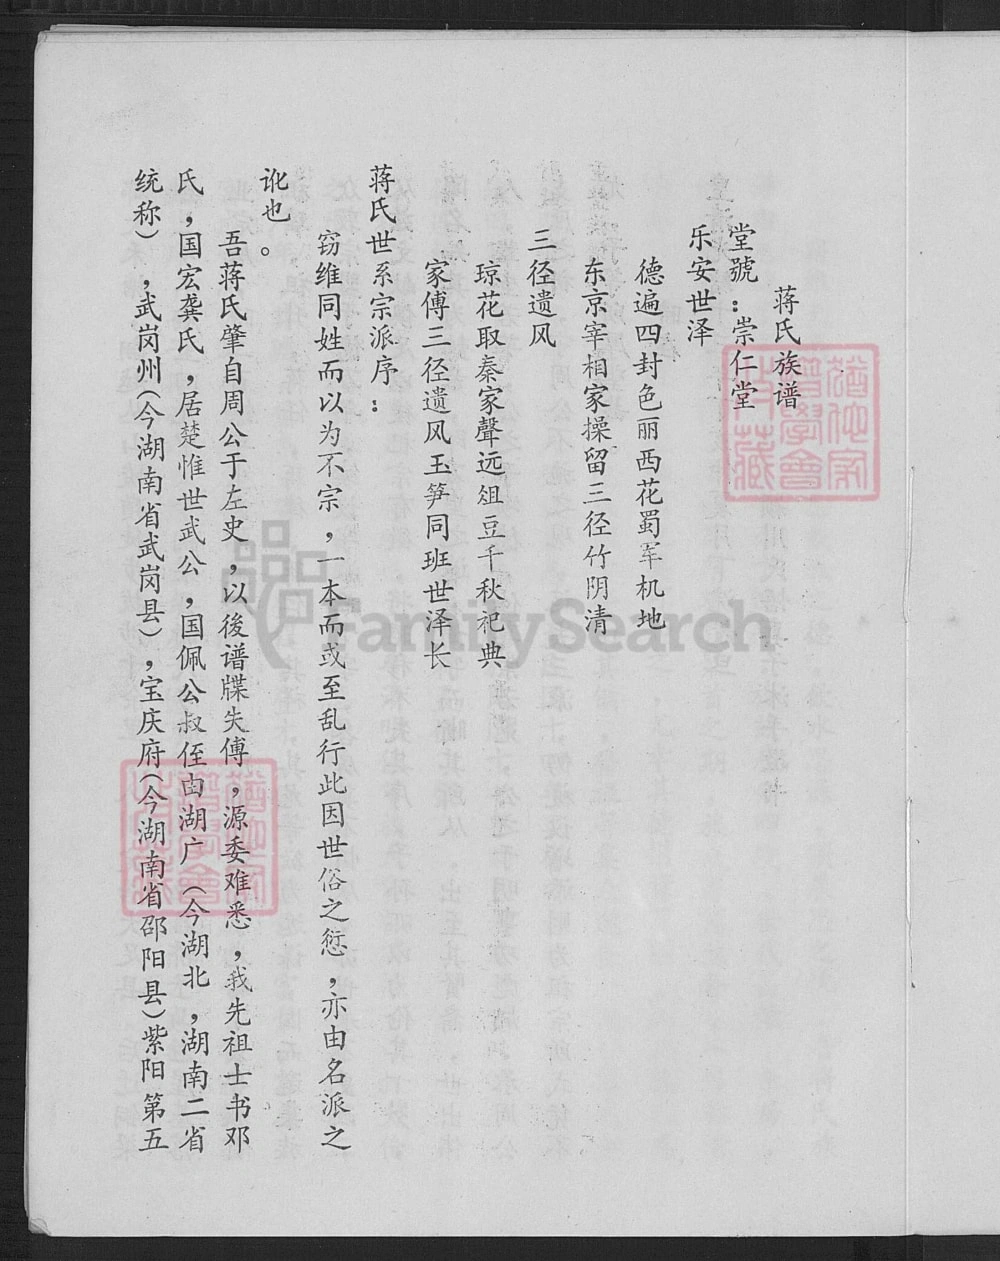 蒋氏族谱
堂號：崇仁堂
乐安世泽
德遍四封色丽西花蜀军机地
东京宰相家操留三径竹阴清
三径遗风
琼花取秦家聲远俎豆千秋祀典
家傅三径遗风玉笋同班世泽长
蒋氏世系宗派序：
窃维同姓而以为不宗，一本而或至乱行此因世俗之愆，亦由名派之
讹也。
吾蒋氏肇自周公于左史，以後谱牒失傅，源委难悉，我先祖士书邓
氏，国宏龚氏，居楚惟世武公，国佩公叔侄由湖广（今湖北，湖南二省
统称），武岗州（今湖南省武岗县），宝庆府（今湖南省邵阳县）紫阳第五
FamilySearch